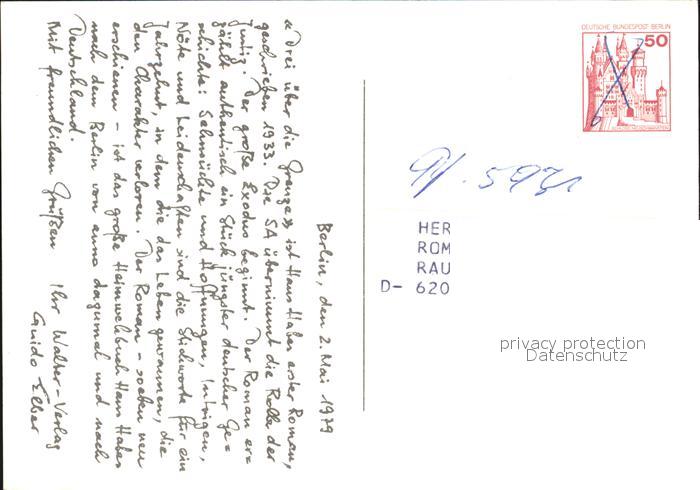 Berlin, den 2. Mai 1979
«Drei über die Grenze» ist Hans Habes erster Roman,
geschrieben 1933. Die SA übernimmt die Rolle der
Justiz. Der große Exodus beginnt. Der Roman er=
zählt authentisch ein Stück jüngster deutscher Ge=
schichte: Sehnsüchte und Hoffnungen, Intrigen,
Nöte und Leidenschaften sind die Stichworte für ein
Jahrzehnt, in dem die das Leben gewannen, die
den Charakter verloren. Der Roman – soeben neu
erschienen – ist das große Heimwehbuch Hans Habes
nach dem Berlin von anno dazumal und nach
Deutschland.
Mit freundlichen Grüßen Ihr Walter-Verlag
Guido Elber
DEUTSCHE BUNDESPOST BERLIN
50
HER
ROM
RAU
D- 620
privacy protection
Datenschutz